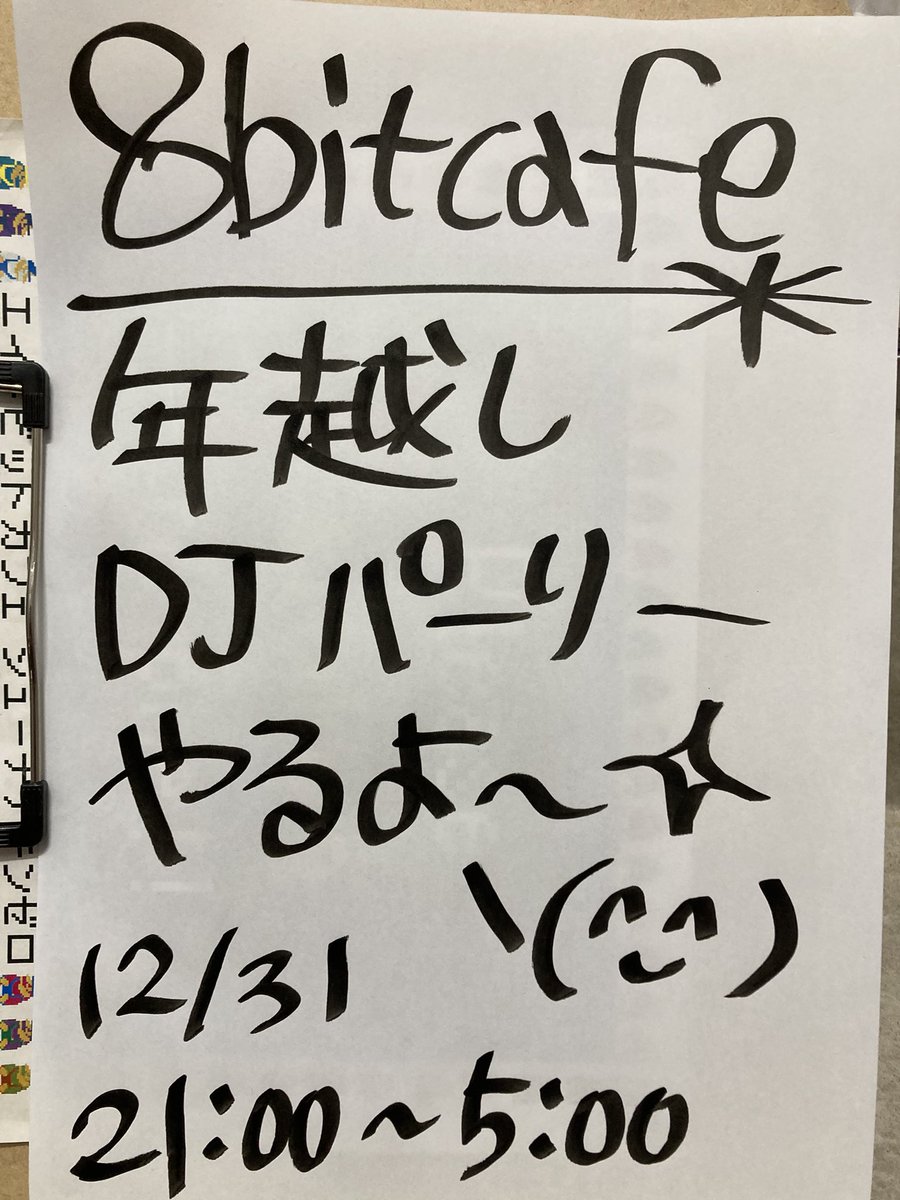 8bitcafe
年越し
DJパーリー
やるよ〜
\(^^)
12/31
21:00〜5:00